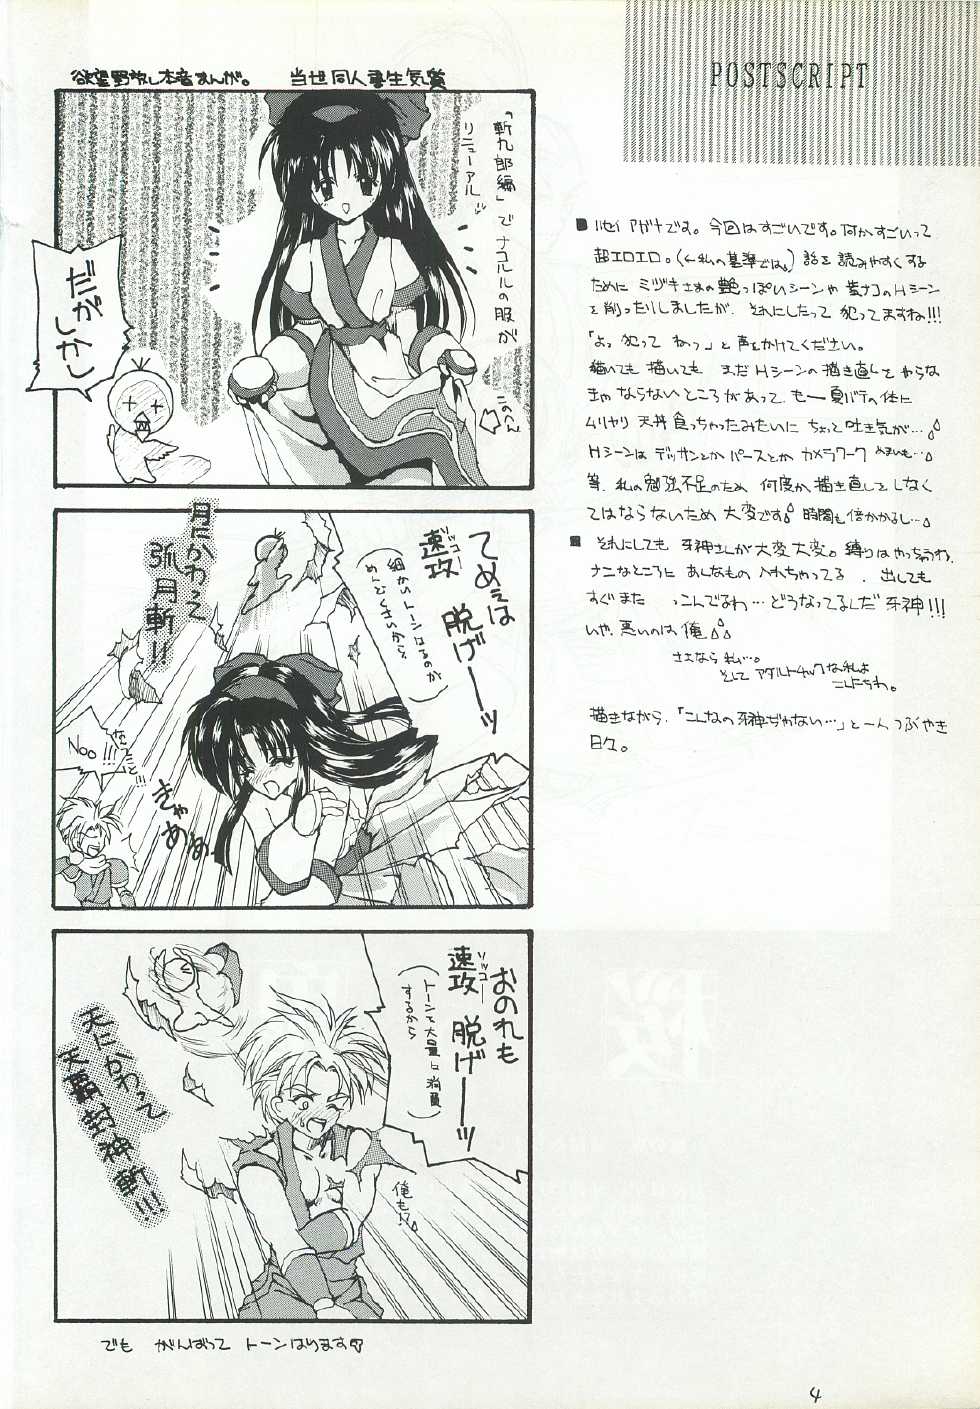 POSTSCRIPT
欲望野放し本音まんが。 当世同人妻生気質
「斬九郎編」で
リニューアル
ナコルルの服が
このへん
だが
しかし
てめぇは
速攻 脱げーーッ
ソッコー
(細かいトーンはるのが
めんどくさいから)
月にかわって
弧月斬!!
Noo!!!
なんてこと…!!!
きゃあぁぁ
おのれも
速攻 脱げーーッ
ソッコー
(トーンを大量に消費
するから)
天にかわって
天覇封神斬!!!
俺も!?
でも がんばって トーンはります
です。今回はすごいです。何がすごいって
超エロエロ。(←私の基準では。)話を読みやすくする
ために ミヅキさまの艶っぽいシーンや のHシーン
を削ったりしましたが、それにしたって 犯ってますね!!!
「よっ、犯ってねっ」と声をかけてください。
描いても描いても まだHシーンの描き直しをやらな
きゃならないところがあって、もー夏バテの体に
ムリヤリ 天丼 食っちゃったみたいに ちょっと吐き気が…。
Hシーンは デッサンとか パースとか カメラワーク めまいも…。
等、私の勉強不足のため 何度か描き直しをしなく
てはならないため 大変です。時間も倍かかるし…。
それにしても 牙神さんが大変大変。縛りはやっちゃうわ、
ナニなところに あんなもの 入れちゃってる、出しても
すぐまた っこんでるわ…どうなってるんだ牙神!!!
いや、悪いのは俺。
さよなら 私…。
そして アダルトチックな私よ
こんにちわ。
描きながら、「こんなの牙神ぢゃない…」と一人つぶやき
日々。
4